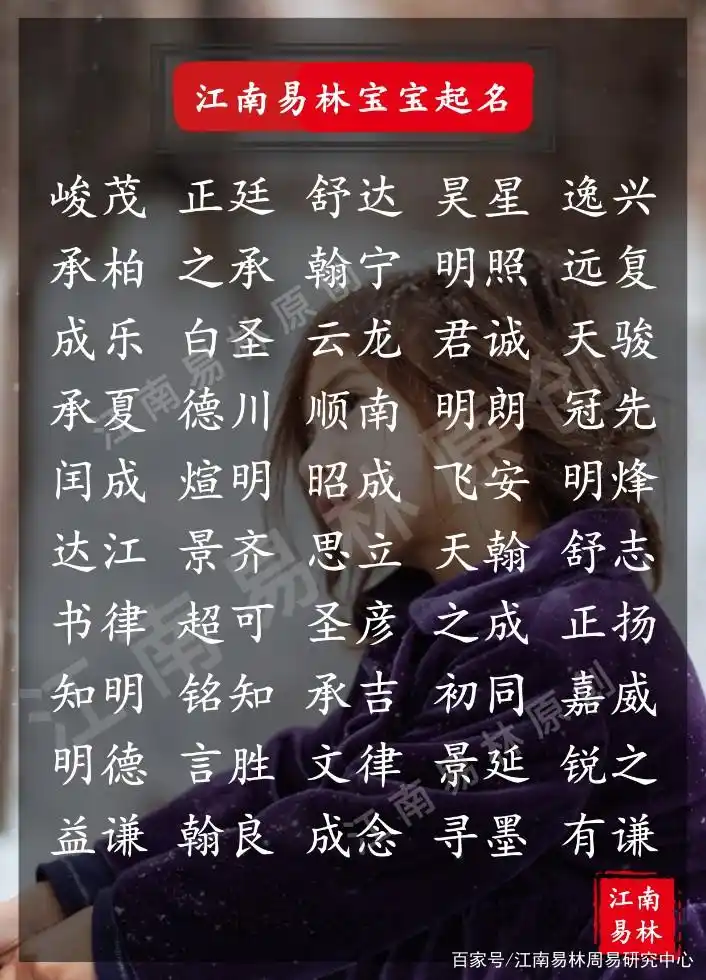 江南易林宝宝起名
峻茂 正廷 舒达 昊星 逸兴
承柏 之承 翰宁 明照 远复
成乐 白圣 云龙 君诚 天骏
承夏 德川 顺南 明朗 冠先
闰成 煊明 昭成 飞安 明烽
达江 景齐 思立 天翰 舒志
书律 超可 圣彦 之成 正扬
知明 铭知 承吉 初同 嘉威
明德 言胜 文律 景延 锐之
益谦 翰良 成念 寻墨 有谦
江南易林原创
江南易林原创
江南易林原创
江南
易林
百家号/江南易林周易研究中心